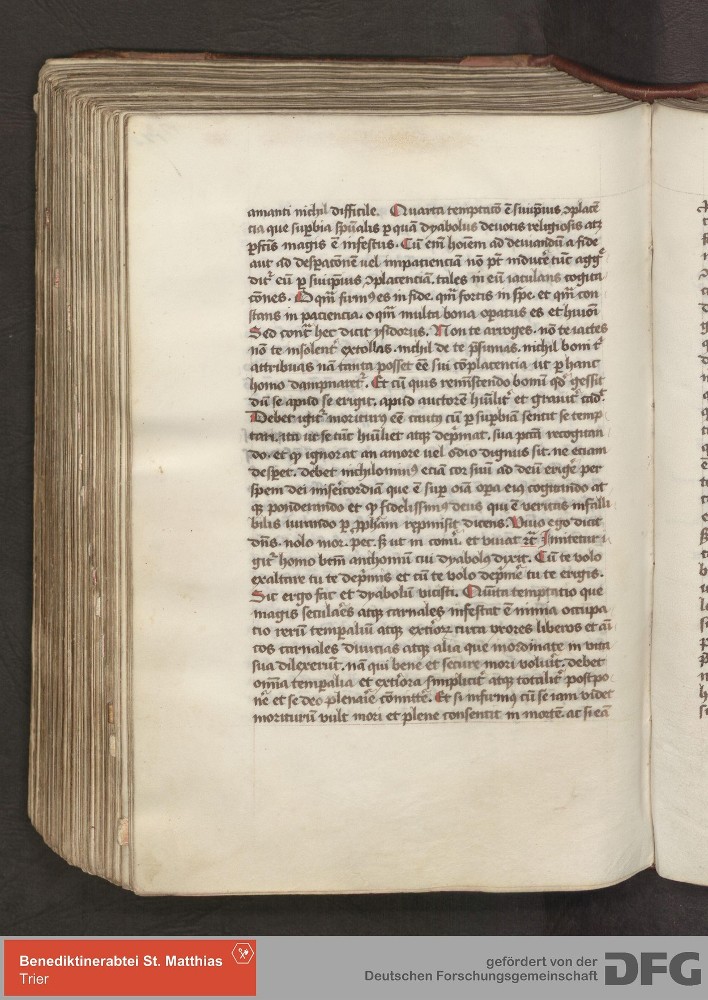 amanti nichil difficile. Quarta temptaco̅ e̅ suiip̅ius ꝯplace̅
cia que sup̅bia sp̅ualis ꝑ qua̅ dyabolus deuotis religiosis atꝫ
ꝑfc̅is magis e̅ infestus. Cu̅ em̅ ho̅iem ad deuiandu̅ a fide
aut ad desperac̅onē uel impaciencia̅ no̅ pt̅ induce̅ tu̅c agg̅
dit᷑ eu̅ ꝑ suiip̅ius ꝯplacencia̅. tales in eu̅ iaculans cogita
c̅ones. O qm̅ firmꝰ es in fide. qm̅ fortis in spe. et qm̅ con
stans in paciencia. o qm̅ multa bona oꝑatus es et hmo̅i
Sed cont᷑ hec dicit ysidorus. Non te arroges. no̅ te iactes
no̅ te insolent᷑ extollas. nichil de te p̅sumas. nichil boni t᷑
attribuas na̅ tanta posset e̅e sui co̅placencia ut ꝑ hanc
homo dampnaret᷑. Et cu̅ quis reminiscendo bonu̅ qd̅ gessit
du̅ se apud se erigit. apud auctore̅ hu̅ilit᷑ et grauit᷑ cad᷑.
Debet igit᷑ moriturꝰ e̅e cautꝰ cu̅ ꝑ sup̅bia̅ sentit se temp
tari. ita ut se tu̅c hu̅iliet atꝗꝫ dep̅mat. sua pc̅ta recogitan
do. et ꝙ ignorat an amore uel odio dignus sit. ne etiam
desp̅et. debet nichilominꝰ ecia̅ cor suu̅ ad deu̅ erige̅ per
spem dei mise̅icordia̅ que e̅ sup̅ oi̅a oꝑa eiꝰ cogitando at
ꝗꝫ ponderando et ꝙ fidelissimꝰ deus qui e̅ veritas infalli
bilis iurando ꝑ ꝓpha̅m repmisit dicens. Viuo ego dicit
dn̅s. nolo mor. pec̅. s̅ ut m̅ co̅u̅. et viuat ꝛc̅. Imitetur i
git᷑ homo btm̅ anthoniu̅ cui dyabolꝰ dixit. Cu̅ te volo
exaltare tu te dep̅mis et cu̅ te volo dep̅me̅ tu te erigis.
Sic ergo fac et dyabolu̅ vicisti. Quinta temptatio que
magis seculares atꝗꝫ carnales infestat e̅ nimia occupa
tio reru̅ temporaliu̅ atꝗꝫ exterior circa vxores liberos et am̅
cos carnales diuicias atꝗꝫ alia que inordinate in vita
sua dilexeru̅t. na̅ qui bene et secure mori voluit̅. debet
omnia temporalia et exte̅iora simplicit᷑ atꝗꝫ totalit᷑ postpo
ne̅ et se deo plenarie co̅mitte̅. Et si infirmꝰ cu̅ se iam videt
morituru̅ vult mori et plene consentit in morte̅. ac si ea̅
Benediktinerabtei St. Matthias
Trier
gefördert von der
Deutschen Forschungsgemeinschaft
DFG